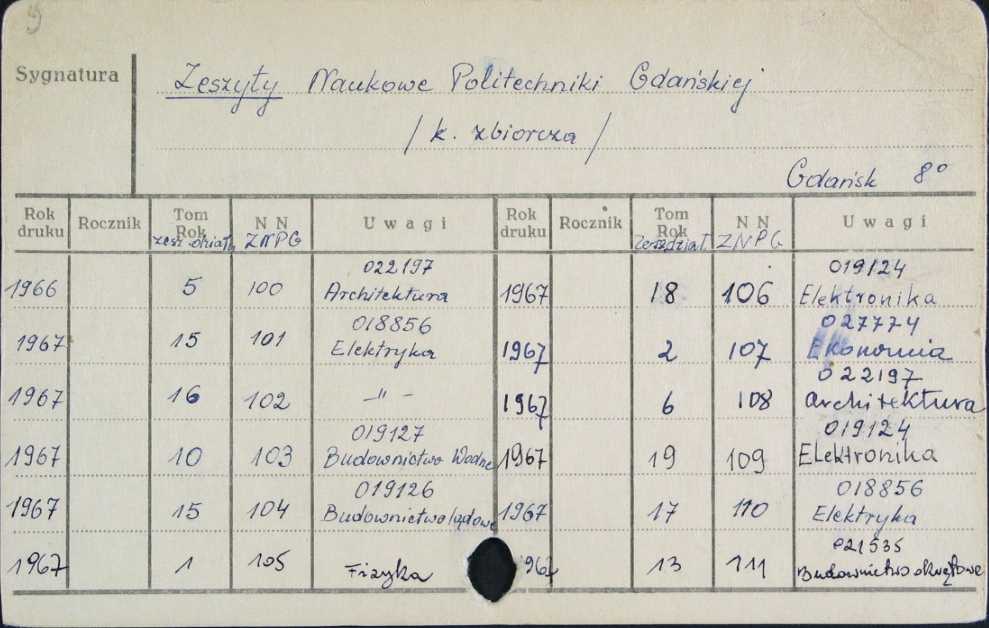 9
Sygnatura
Zeszyty Naukowe Politechniki Gdańskiej
/k. zbiorcza/
Gdańsk 8°
Rok druku Rocznik Tom Rok zesz. działu N N ZNPG Uwagi Rok druku Rocznik Tom Rok N N ZNPG Uwagi
022197 019124
1966 5 100 Architektura 1967 18 106 Elektronika
018856 027774
1967 15 101 Elektryka 1967 2 107 Ekonomia
022197
1967 16 102 -"- 1967 6 108 Architektura
019127 019124
1967 10 103 Budownictwo Wodne 1967 19 109 Elektronika
019126 018856
1967 15 104 Budownictwo lądowe 1967 17 110 Elektryka
021535
1967 1 105 Fizyka 1967 13 111 Budownictwo okrętowe